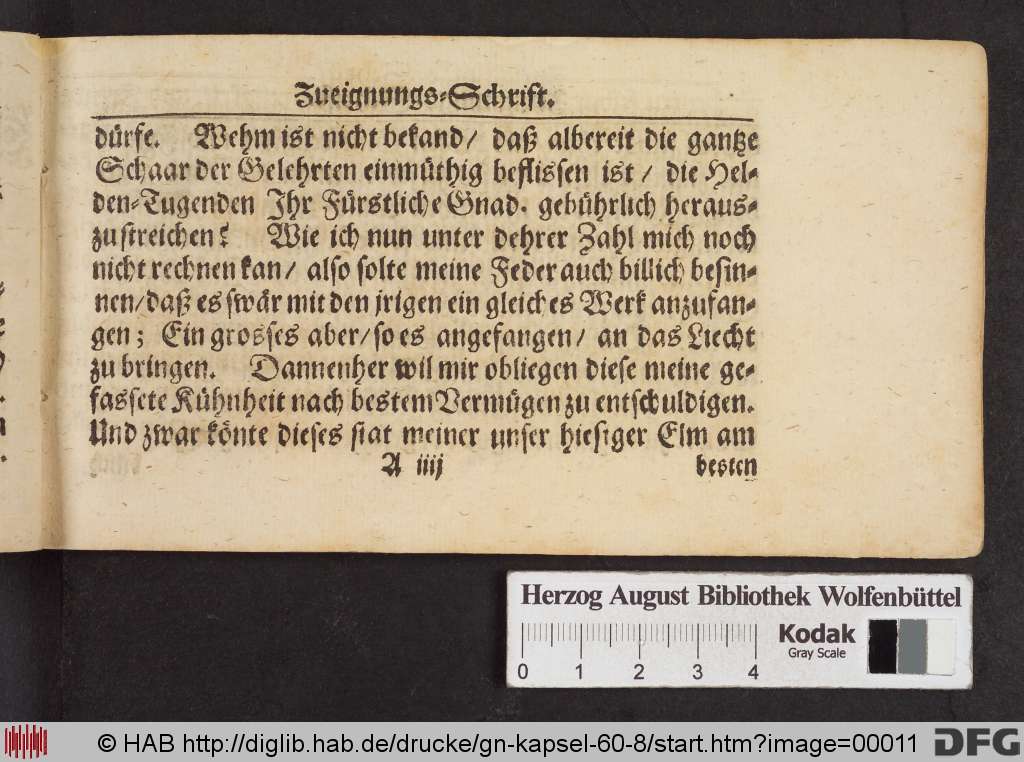 Zueignungs-Schrift.
dürfe. Wehm ist nicht bekand/ daß albereit die gantze
Schaar der Gelehrten einmüthig beflissen ist/ die Hel-
den-Tugenden Ihr Fürstliche Gnad. gebührlich heraus-
zustreichen? Wie ich nun unter dehrer Zahl mich noch
nicht rechnen kan/ also solte meine Feder auch billich besin-
nen/ daß es swär mit den jrigen ein gleiches Werk anzufan-
gen; Ein grosses aber/ so es angefangen/ an das Liecht
zu bringen. Dannenher wil mir obliegen diese meine ge-
fassete Kühnheit nach bestem Vermügen zu entschuldigen.
Und zwar könte dieses stat meiner unser hiesiger Elm am
A iiij besten
Herzog August Bibliothek Wolfenbüttel
Kodak
Gray Scale
0 1 2 3 4
© HAB http://diglib.hab.de/drucke/gn-kapsel-60-8/start.htm?image=00011
DFG